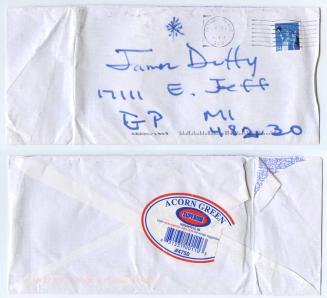 James Duffy
17111 E. Jeff
GP MI
48230
ACORN GREEN
SUPERIOR
#4750